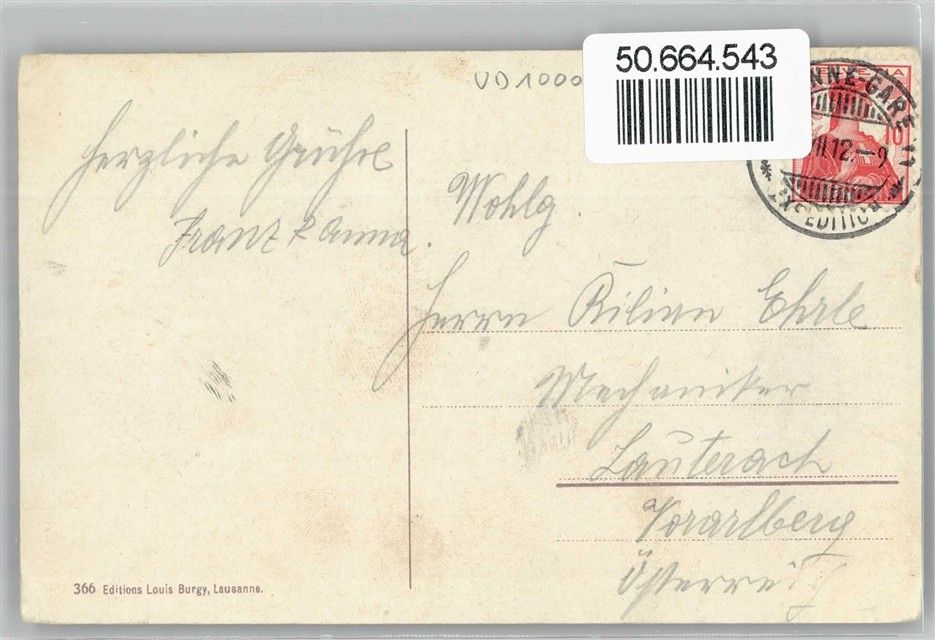 50.664.543
VD1000
HELVETIA
NNE-GARE
VII.12.–9
EXPEDITION
10
Herzliche Grüße
Franz & Anna.
Wohlg.
Herrn Kilian Ehrle
Mechaniker
Lauterach
Vorarlberg
Österreich
366 Editions Louis Burgy, Lausanne.